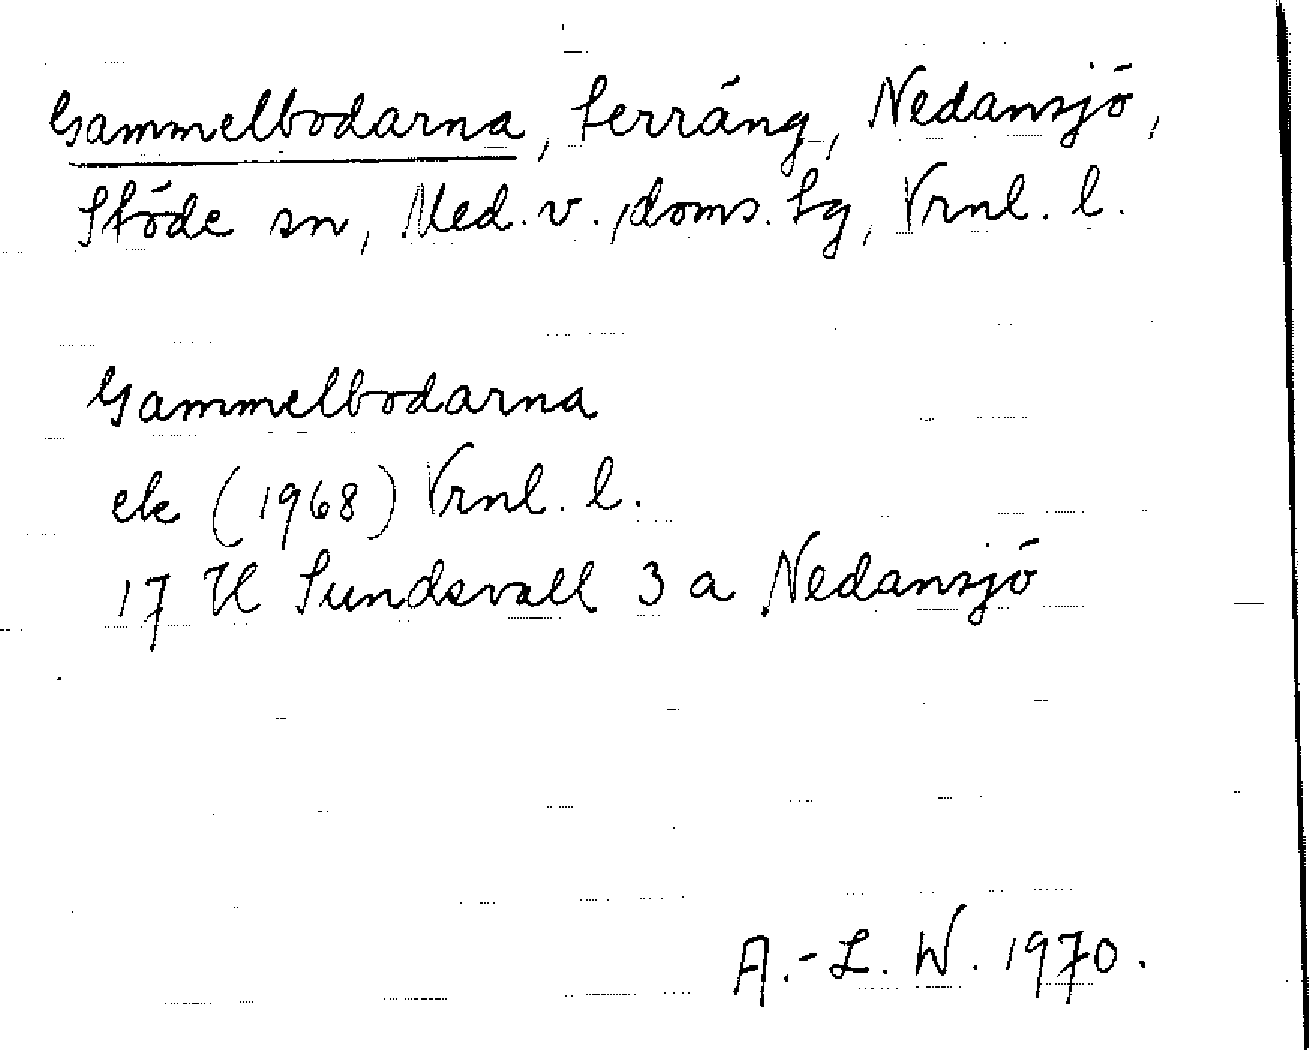 Gammelbodarna, terräng, Nedansjö,
Stöde sn, Med. v. doms. tg, Vrnl. l.
Gammelbodarna
ek (1968) Vrnl. l.
17 H Sundsvall 3 a Nedansjö
A.-L. W. 1970.